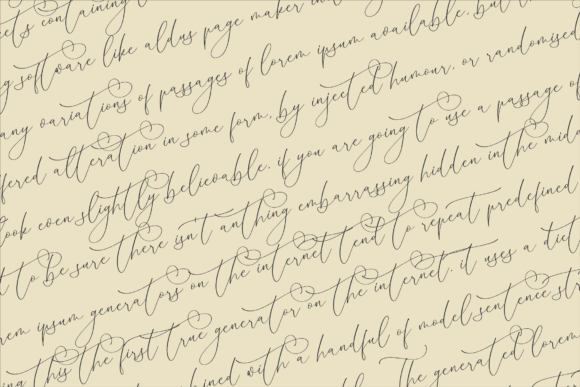 containing
g software like aldus page maker in
any variations of passages of lorem ipsum available, but
fered alteration in some form, by injected humour, or randomised
look even slightly believable. if you are going to use a passage of
to be sure there isn't anthing embarrassing hidden in the mid
rem ipsum generators on the internet tend to repeat predefined
ing this the first true generator on the internet. it uses a dict
with a handful of model sentence str
The generated lorem